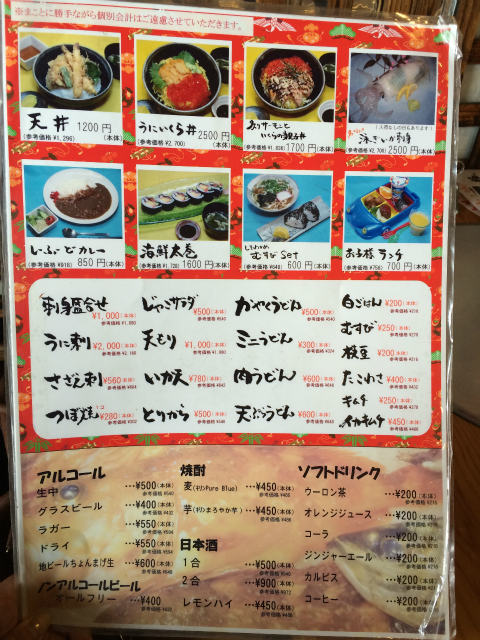 ※まことに勝手ながら個別会計はご遠慮させていただきます。
天丼 1200円
(参考価格 ¥1,296) (本体)
うにいくら丼 2500円
(参考価格 ¥2,700) (本体)
いくらの親子丼 1700円
(本体)
(入荷なしの日もあります)
活きいか刺身
(参考価格 ¥2,700) 2500円(本体)
しーふーどカレー
(参考価格 ¥918) 850円(本体)
海鮮太巻
(参考価格 ¥1,728) 1600円(本体)
むすびset
(参考価格 ¥648) 600円(本体)
お子様ランチ
(参考価格 ¥756) 700円(本体)
刺身盛合せ ¥1,000(本体)
参考価格 ¥1,080
うに刺 ¥2,000(本体)
参考価格 ¥2,160
さざえ刺 ¥560(本体)
参考価格 ¥604
つぼ焼 1コ ¥280(本体)
参考価格 ¥302
じゃこサラダ ¥500(本体)
参考価格 ¥540
天もり ¥1,000(本体)
参考価格 ¥1,080
いか天 ¥780(本体)
参考価格 ¥842
とりから ¥500(本体)
参考価格 ¥540
かやくうどん ¥500(本体)
参考価格 ¥540
ミニうどん ¥300(本体)
参考価格 ¥324
肉うどん ¥600(本体)
参考価格 ¥648
天ぷらうどん ¥600(本体)
参考価格 ¥648
白ごはん ¥200(本体)
参考価格 ¥216
むすび ¥250(本体)
参考価格 ¥270
枝豆 ¥200(本体)
参考価格 ¥216
たこわさ ¥400(本体)
参考価格 ¥432
キムチ ¥250(本体)
参考価格 ¥270
イカキムチ ¥450(本体)
参考価格 ¥486
アルコール
生中 …¥500(本体)
参考価格 ¥540
グラスビール …¥400(本体)
参考価格 ¥432
ラガー …¥550(本体)
参考価格 ¥594
ドライ …¥550(本体)
参考価格 ¥594
地ビールちょんまげ生 …¥600(本体)
参考価格 ¥648
ノンアルコールビール
オールフリー …¥400
参考価格 ¥432
焼酎
麦(キリンPure Blue) …¥450(本体)
参考価格 ¥486
芋(キリンまろやか芋) …¥450(本体)
参考価格 ¥486
日本酒
1合 …¥500(本体)
参考価格 ¥540
2合 …¥900(本体)
参考価格 ¥972
レモンハイ …¥450(本体)
参考価格 ¥486
ソフトドリンク
ウーロン茶 …¥200(本体)
参考価格 ¥216
オレンジジュース …¥200(本体)
参考価格 ¥216
コーラ …¥200(本体)
参考価格 ¥216
ジンジャーエール …¥200(本体)
参考価格 ¥216
カルピス …¥200(本体)
参考価格 ¥216
コーヒー …¥200(本体)
参考価格 ¥216